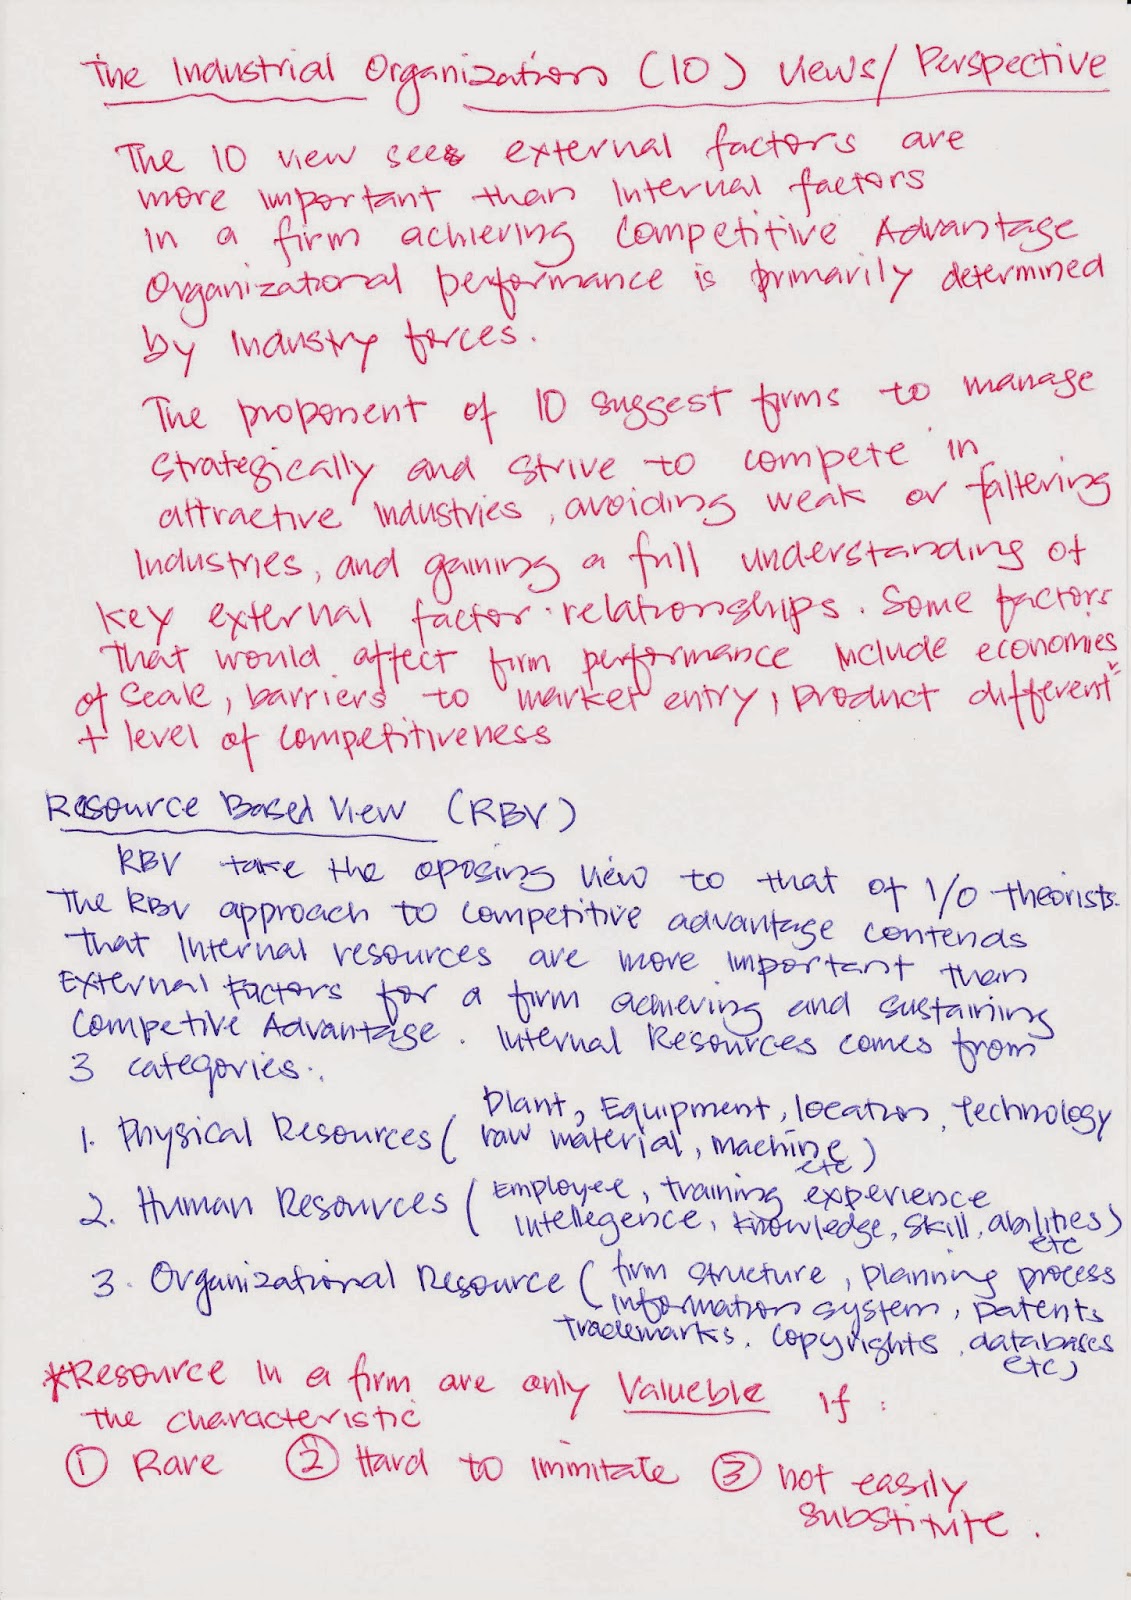 The Industrial Organization (IO) Views/Perspective
The IO view sees external factors are
more important than Internal factors
in a firm achieving Competitive Advantage
Organizational performance is primarily determined
by Industry forces.
The proponent of IO suggest firms to manage
Strategically and strive to compete in
attractive industries, avoiding weak or faltering
Industries, and gaining a full understanding of
key external factor relationships. Some factors
that would affect firm performance include economies
of scale, barriers to market entry, product different
+ level of competitiveness
Resource Based View (RBV)
RBV take the oposing view to that of I/O theorists.
The RBV approach to competitive advantage contends
that Internal resources are more important than
External Factors for a firm achieving and sustaining
Competive Advantage. Internal Resources comes from
3 categories.
1. Physical Resources (Plant, Equipment, location, Technology
raw material, machine
etc)
2. Human Resources (Employee, training experience
Intellegence, knowledge, skill, abilities)
etc
3. Organizational Resource (firm structure, planning process
information system, patents
Trademarks, copyrights, databases
etc)
*Resource in a firm are only Valueble If :
the characteristic
① Rare ② Hard to immitate ③ not easily
substitute.